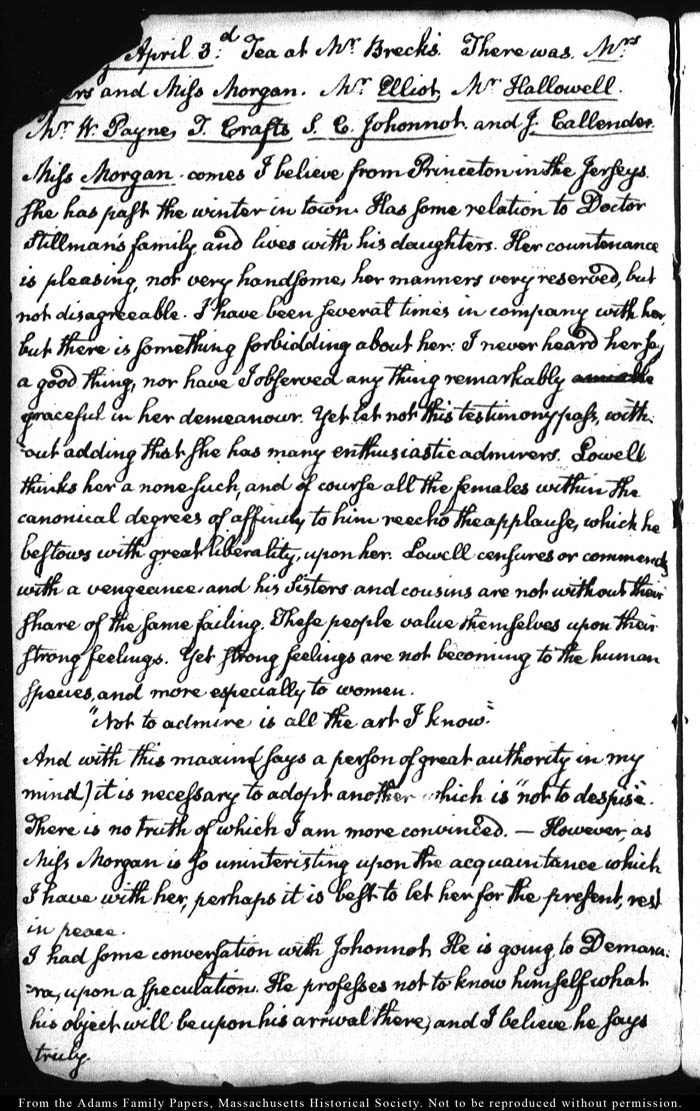 April 3.d Tea at Mr. Breck's. There was. Mrs
and Miss Morgan. Mr. Elliot, Mr. Hallowell.
Mr. W. Payne, T. Crafts S. C. Johonnot. and J. Callender.
Miss Morgan. comes I believe from Princeton in the Jerseys.
She has past the winter in town. Has some relation to Doctor
Stillman's family, and lives with his daughters. Her countenance
is pleasing, not very handsome, her manners very reserved, but
not disagreeable. I have been several times in company with her,
but there is something forbidding about her: I never heard her say
a good thing, nor have I observed any thing remarkably
graceful in her demeanour. Yet let not this testimony pass, with-
-out adding that she has many enthusiastic admirers. Lowell
thinks her a none-such, and of course all the females within the
canonical degrees of affinity to him reecho the applause, which he
bestows with great liberality, upon her. Lowell censures or commends
with a vengeance and his Sisters and cousins are not without their
share of the same failing. These people value themselves upon their
strong feelings. Yet strong feelings are not becoming to the human
species, and more especially to women.
"Not to admire is all the art I know."
And with this maxim (says a person of great authority in my
mind) it is necessary to adopt another which is "not to despise."
There is no truth of which I am more convinced. — However, as
Miss Morgan is so uninteristing upon the acquaintance which
I have with her, perhaps it is best to let her for the present, rest
in peace.
I had some conversation with Johonnot. He is going to Demara-
-ra, upon a speculation. He professes not to know himself what
his object will be upon his arrival there, and I believe he says
truly.
From the Adams Family Papers, Massachusetts Historical Society. Not to be reproduced without permission.